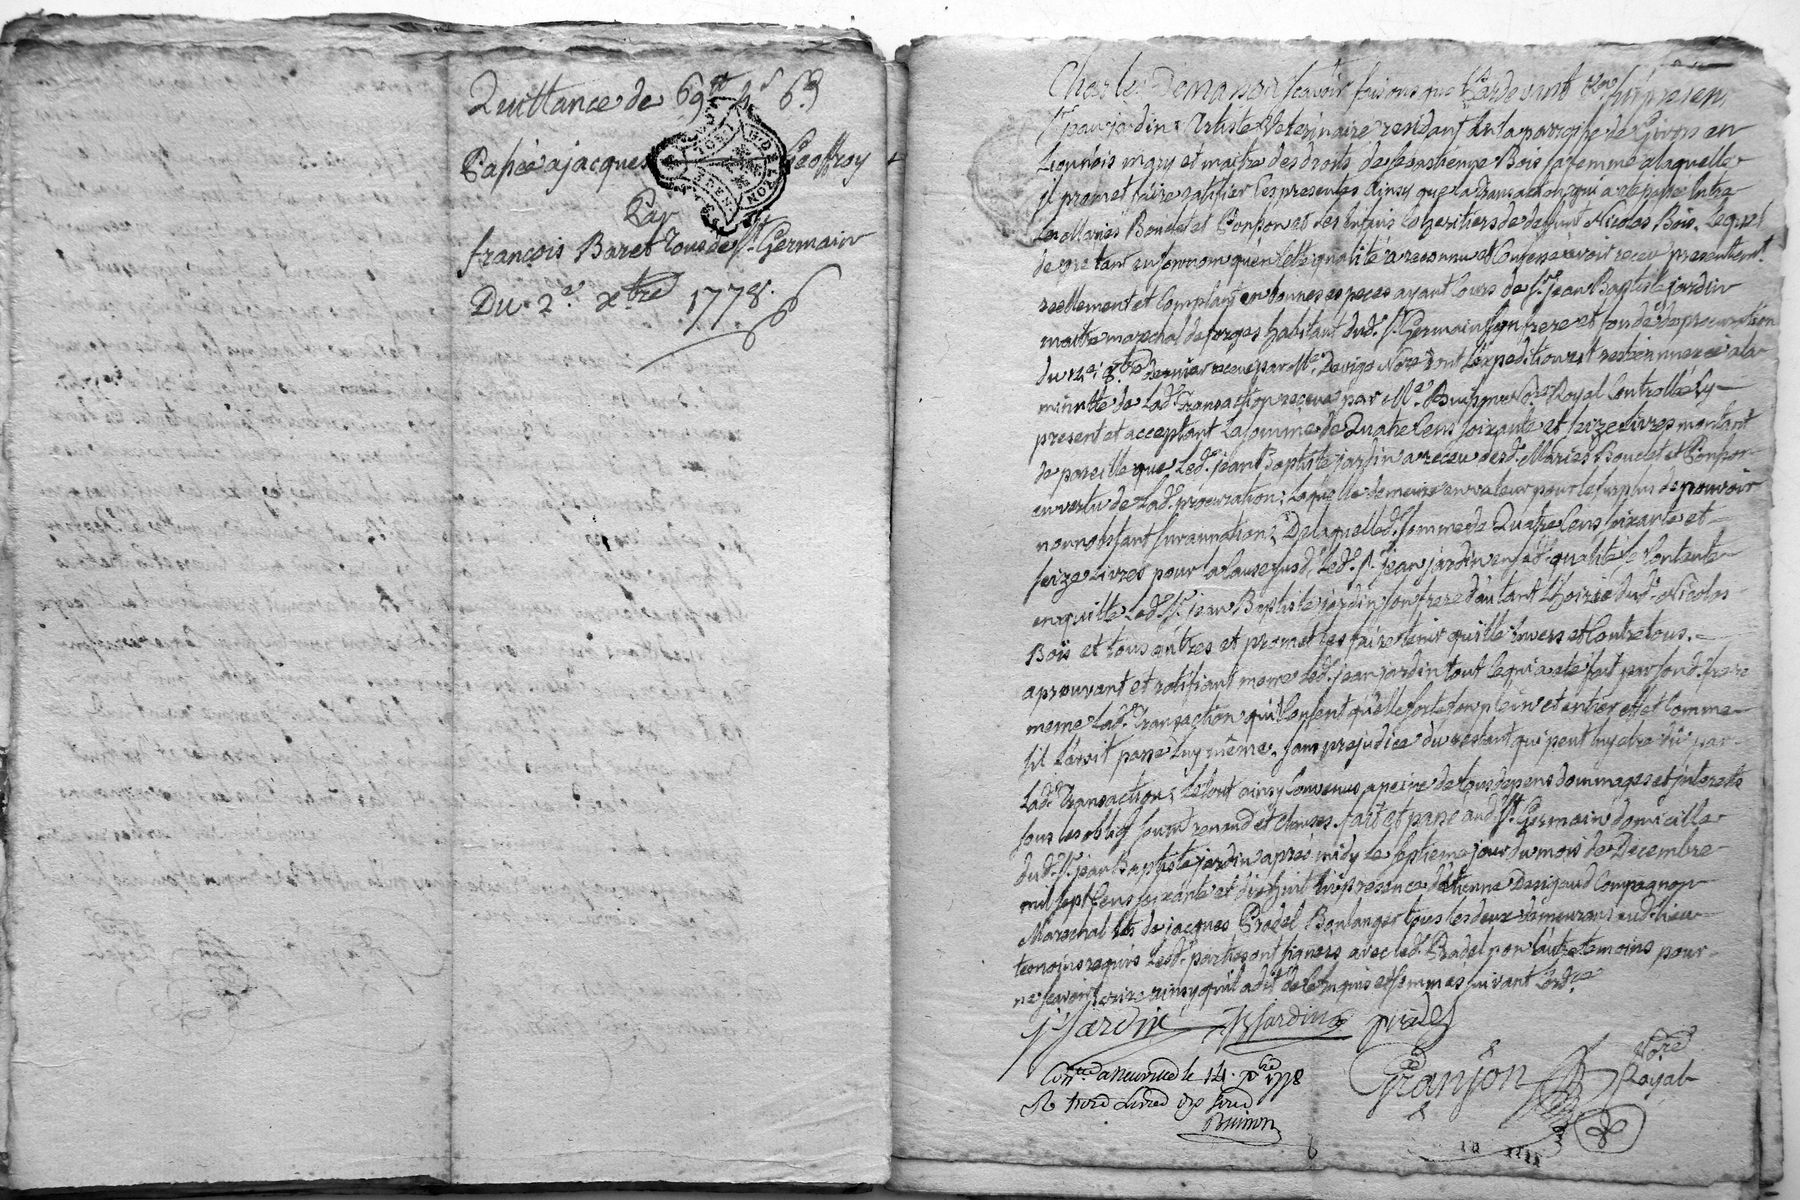 Quittance de 69
Payée a jacques Geoffroy
Par
françois Baret Tous de St. Germain
Du 2e. xbre 1778.
Charles Demanoir scavoir faisons que Pardevant
Sr. jean jardin Artiste Veterinaire residant en la parroisse de Givors en
Lionnois mary et maitre des droits de Sebastienne Bois sa femme a laquelle
il promet faire ratifier les presentes Ainsy que la Transaction qui a eté entre
Les Maries Bouclet et Ponson et les heritiers de defunt Nicolas Bois. Lequel
de gré tant en son nom qu'en lad. qualité a reconnu et Confessé avoir receu presentement
reellement et Comptant en bonnes especes ayant Cours de Sr. jean Baptiste jardin
maitre marechal de forges habitant dud. St. Germain son frere et fondé de procuration
du 12e. 8bre dernier receue par Me. Devige Nore. dont l'expedition est restée annexée a la
minutte de lad. Transaction receue par Me. Nore. Royal Controllé Cy
present et acceptant La somme de Quatre Cens soixante et seize Livres montant
de pareille que Led. jean Baptiste jardin a receu desd. Maries Bouclet et Ponson
en vertu de Lad. procuration; Laquelle demeure en valeur pour le surplus de pouvoir
nonnobstant surannation; De laquelled. somme de Quatre Cens soixante et
seize Livres pour la Cause susd. Led. Sr. jean jardin en sad. qualité se Contente
en quitte Led. Sr. jean Baptiste jardin son frere d'autant L'hoirie dud. Nicolas
Bois et tous autres et promet les faire tenir quitte Envers et Contre tous.
aprouvant et ratifiant meme Led. jean jardin tout ce qui a eté fait par sond. frere
meme lad. Transaction qu'il Consent qu'elle sorte son plein et entier effet Comme
s'il L'avoit passé Luy même. sans prejudice du restant qui peut luy etre dû par
Lad. Transaction; Le tout ainsy Convenu a peine de tous depens dommages et interets
sous les obligaon. soumn. renaon. et Clauses. fait et passé aud. St. Germain domicille
dud. Sr. jean Baptiste jardin apres midy le septieme jour du mois de Decembre
mil sept Cens soixante et dix huit En presence d'Etienne Derigaud Compagnon
Marechal et de jacques Pradel Boulanger tous les deux demeurans aud. lieu
temoins requis Lesd. parties ont signées avec led. Pradel non l'autre temoins pour
ne scavoir ecrire ainsy qu'il a dit de ce enquis et sommes suivant L'orde.
j. jardin JB jardin pradel
Granjon Nore. Royal
Con.lé a le 14. xbre 1778
R